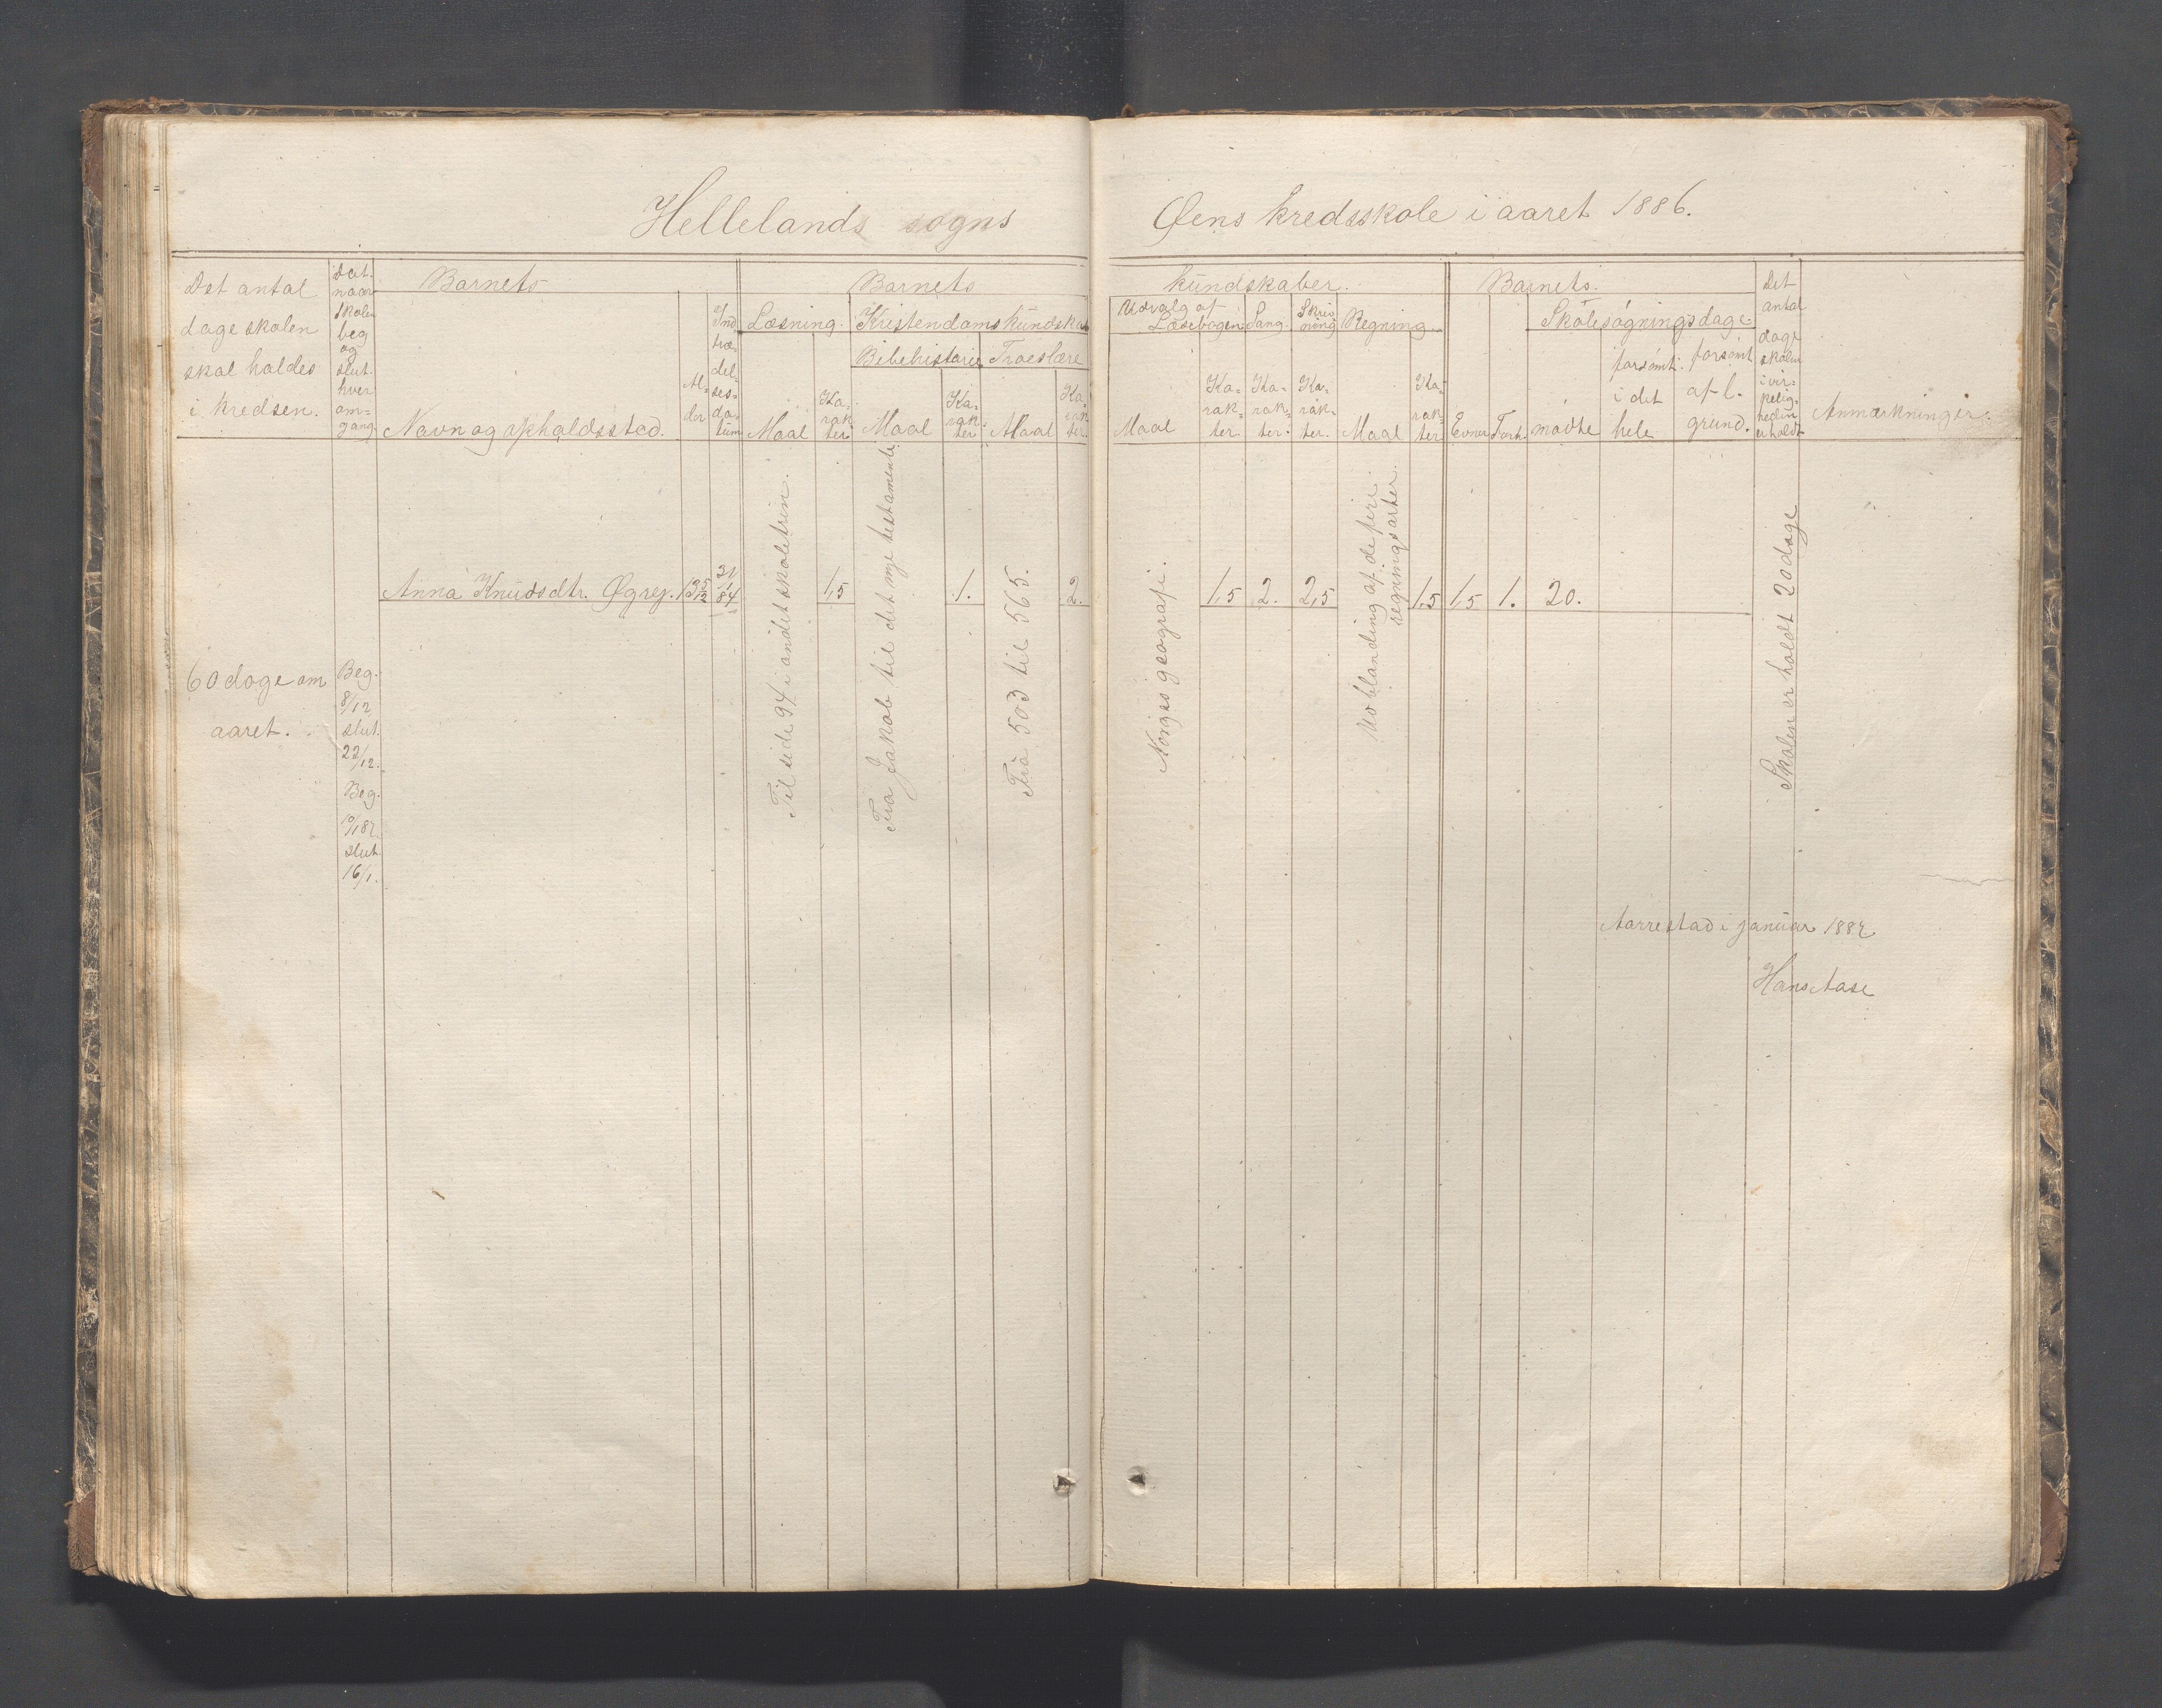 Hellelands sogns
Øens kredsskole i aaret 1886.
Det antal
dage skolen
skal holdes
i kredsen.
Dat.
naar
skolen
beg
og
slut.
hver
om=
gang
Barnets
Navn og opholdssted.
Al=
der
Ind
træ=
del=
ses=
da=
tum
Barnets
Læsning.
Maal
Ka=
rak=
ter
Kristendomskundskab
Bibelhistorie
Maal
Ka=
rak=
ter
Troeslære
Maal
Ka=
rak=
ter.
kundskaber.
Udvalg af
Læsebogen
Maal
Ka=
rak=
ter
Sang.
Ka=
rak=
ter.
Skriv
ning
Ka=
rak=
ter.
Regning
Maal
Ka=
rak=
ter
Barnets.
Evner
Forh.
Skolesøgningsdage.
mødte
forsømt.
i det
hele
forsømt
af l.
grund.
Det
antal
dage
skolen
i vir=
kelig=
heden
er holdt
Anmærkninger.
60 dage om
aaret.
Beg.
8/12
slut.
22/12.
Beg.
slut.
16/1.
Anna Knudsdtr. Øgrej.
Til side 94 i andet skoletrin.
1,5
Fra Jakob til det nye testamente
1.
Fra 503 til 565.
2.
Norges geografi.
1,5
2.
2,5
Ublanding af de fire
regningsarter.
1,5
1,5
1.
20.
Skolen er holdt 20 dage
Aarrestad i januar 1887
Hans Aase